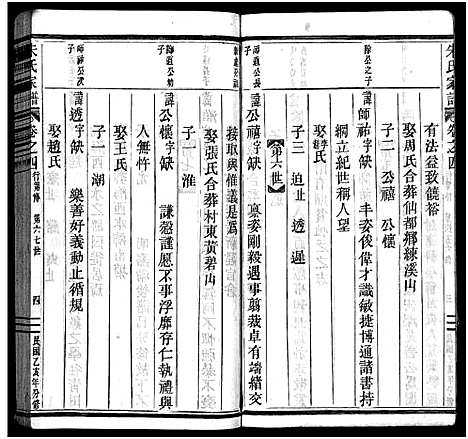 朱氏家譜 卷之四
有法益致饒裕
娶周氏合葬仙都鄉練溪山
子二 公禧 公懷
諱師祐字缺 丰姿俊偉才識敏捷博通諸書持
綱立紀世稱人望
娶李氏
子三 迫 止 透 遲
第六世
諱公禧字缺 稟姿剛毅遇事剪裁卓有端緒交
接取與惟義是爲
娶張氏合葬村東黃碧山
子一 淮
諱公懷字缺 謙愨謹愿不事浮靡存仁執禮與
人無忤
娶王氏
子一 湖
諱透字缺 樂善好義動止循規
娶趙氏
朱氏家譜 卷之四 行第傳 第六七世 四 民國乙亥年分修